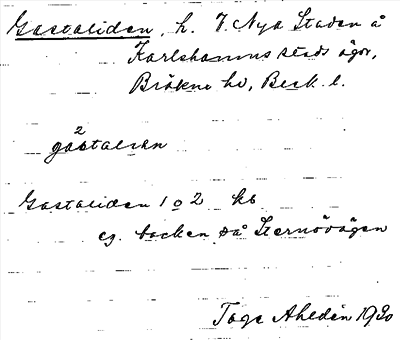 Gastaliden, h. i Nya Staden å
Karlshamns stads ägor,
Bräkne hd, Blek. l.
2
gastalidn
Gastaliden 1 o 2 kb
eg. backen på Sternövägen
Tage Ahldén 1930